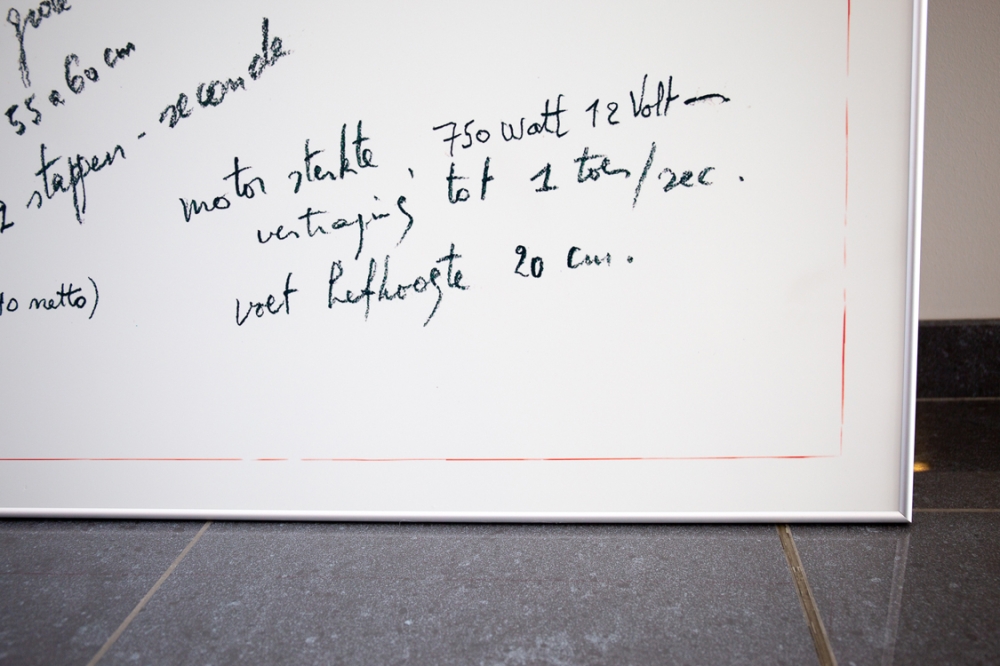 grote
55 a 60 cm
2 stappen - seconde
motor sterkte, 750 watt 12 Volt —
vertraging tot 1 toer/sec.
voet hefhoogte 20 cm.
netto)